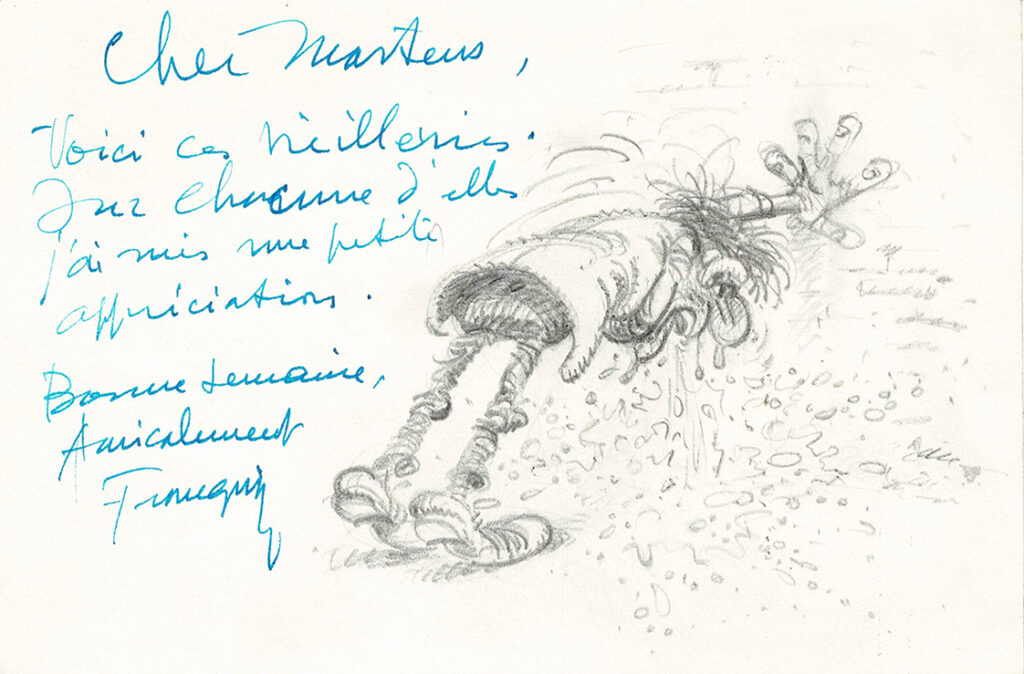 Cher Martens,
Voici ces vieilleries.
Sur chacune d'elles
j'ai mis une petite
appréciation.
Bonne semaine,
Amicalement
Franquin